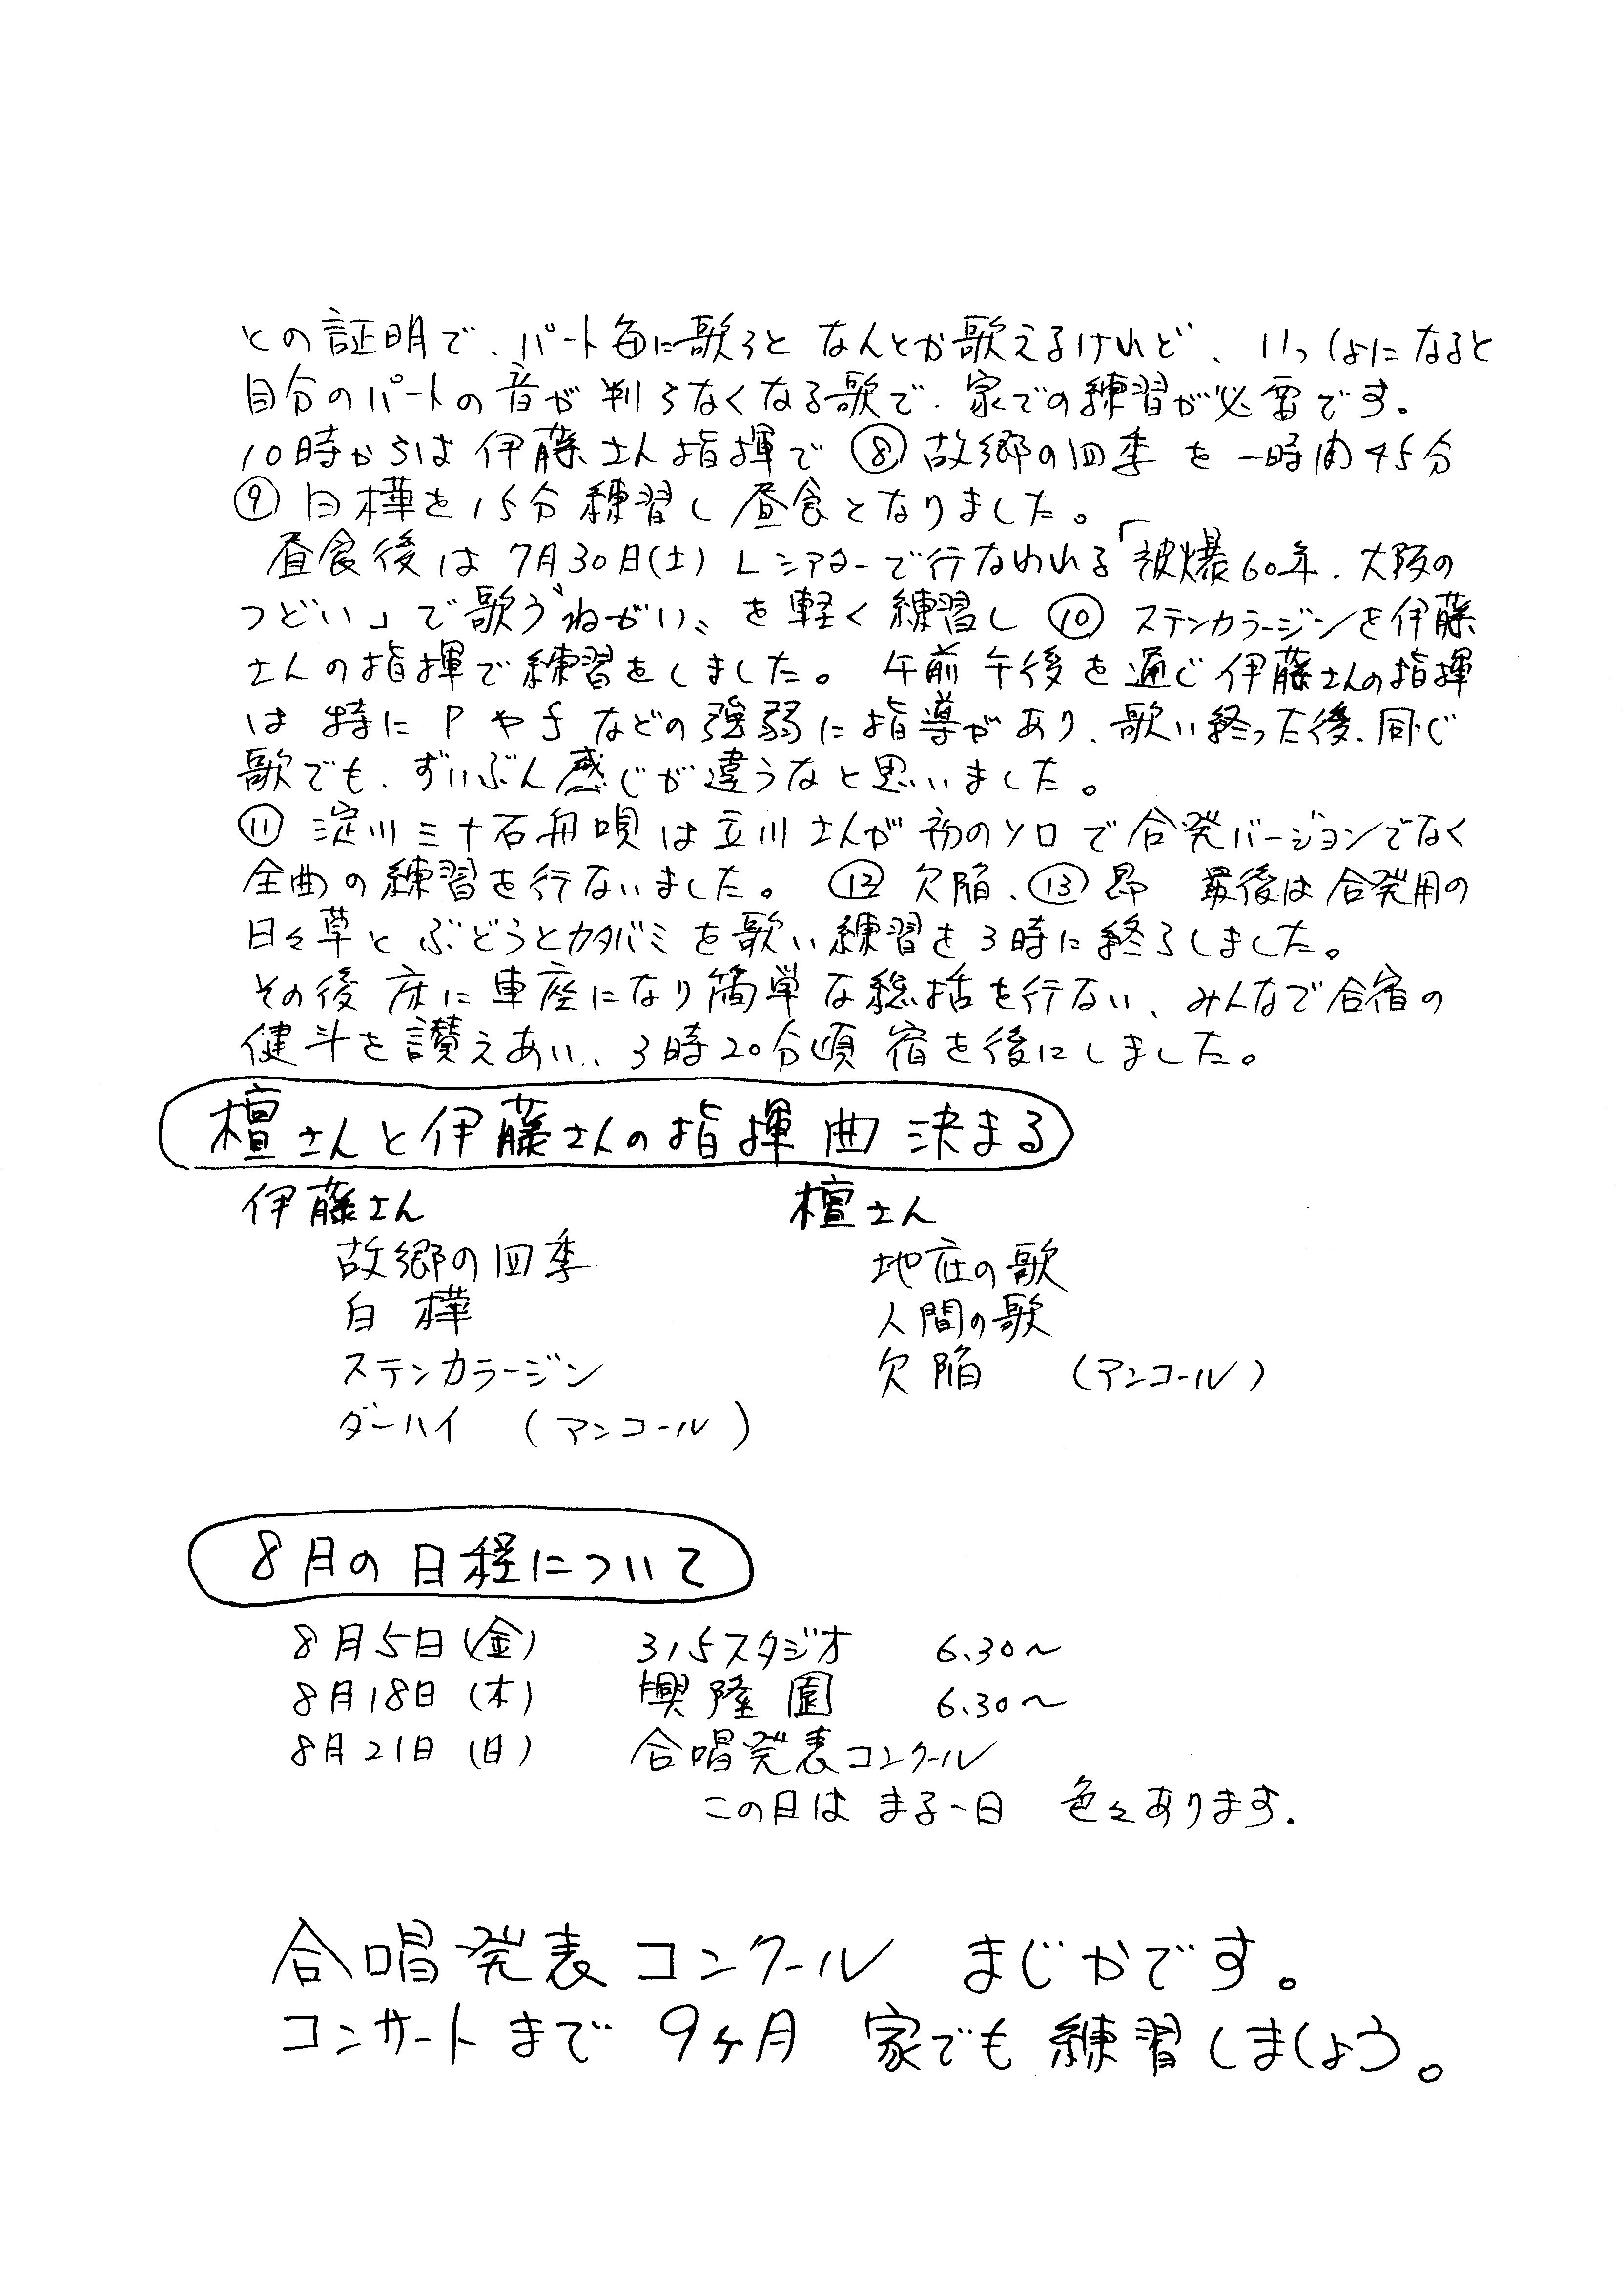 との証明で、パート毎に歌うと なんとか歌えるけれど、いっしょになると
自分のパートの音が判らなくなる歌で、家での練習が必需です。
10時からは 伊藤さん指揮で ⑧故郷の四季 を 一時間45分
⑨ 白樺を15分 練習し 昼食となりました。
昼食後は 7月30日(土) Lシアターで行なわれる「被爆60年.大阪の
つどい」で歌う〝ねがい〟を軽く練習し ⑩ ステンカラージンを伊藤
さんの指揮で練習をしました。 午前 午後を通じ伊藤さんの指揮
は 特に P や f などの強弱に指導があり、歌い終った後、同じ
歌でも、ずいぶん感じが違うなと思いました。
⑪ 淀川三十石舟唄は立川さんが初のソロで合発バージョンでなく
全曲の練習を行ないました。 ⑫ 欠陥、⑬ 昴 最後は合発用の
日々草と ぶどうとカタバミを歌い練習を3時に終了しました。
その後 床に車座になり簡単な総括を行ない、みんなで合宿の
健斗を讃えあい、3時20分頃 宿を後にしました。
檀さんと伊藤さんの指揮曲決まる
伊藤さん 檀さん
故郷の四季 地底の歌
白樺 人間の歌
ステンカラージン 欠陥 (アンコール)
ダーハイ (アンコール)
8月の日程について
8月5日(金) 315スタジオ 6.30〜
8月18日(木) 興隆園 6.30〜
8月21日(日) 合唱発表コンクール
この日は まる一日 色々あります.
合唱発表コンクール まじかです。
コンサートまで 9ヶ月 家でも練習しましょう。